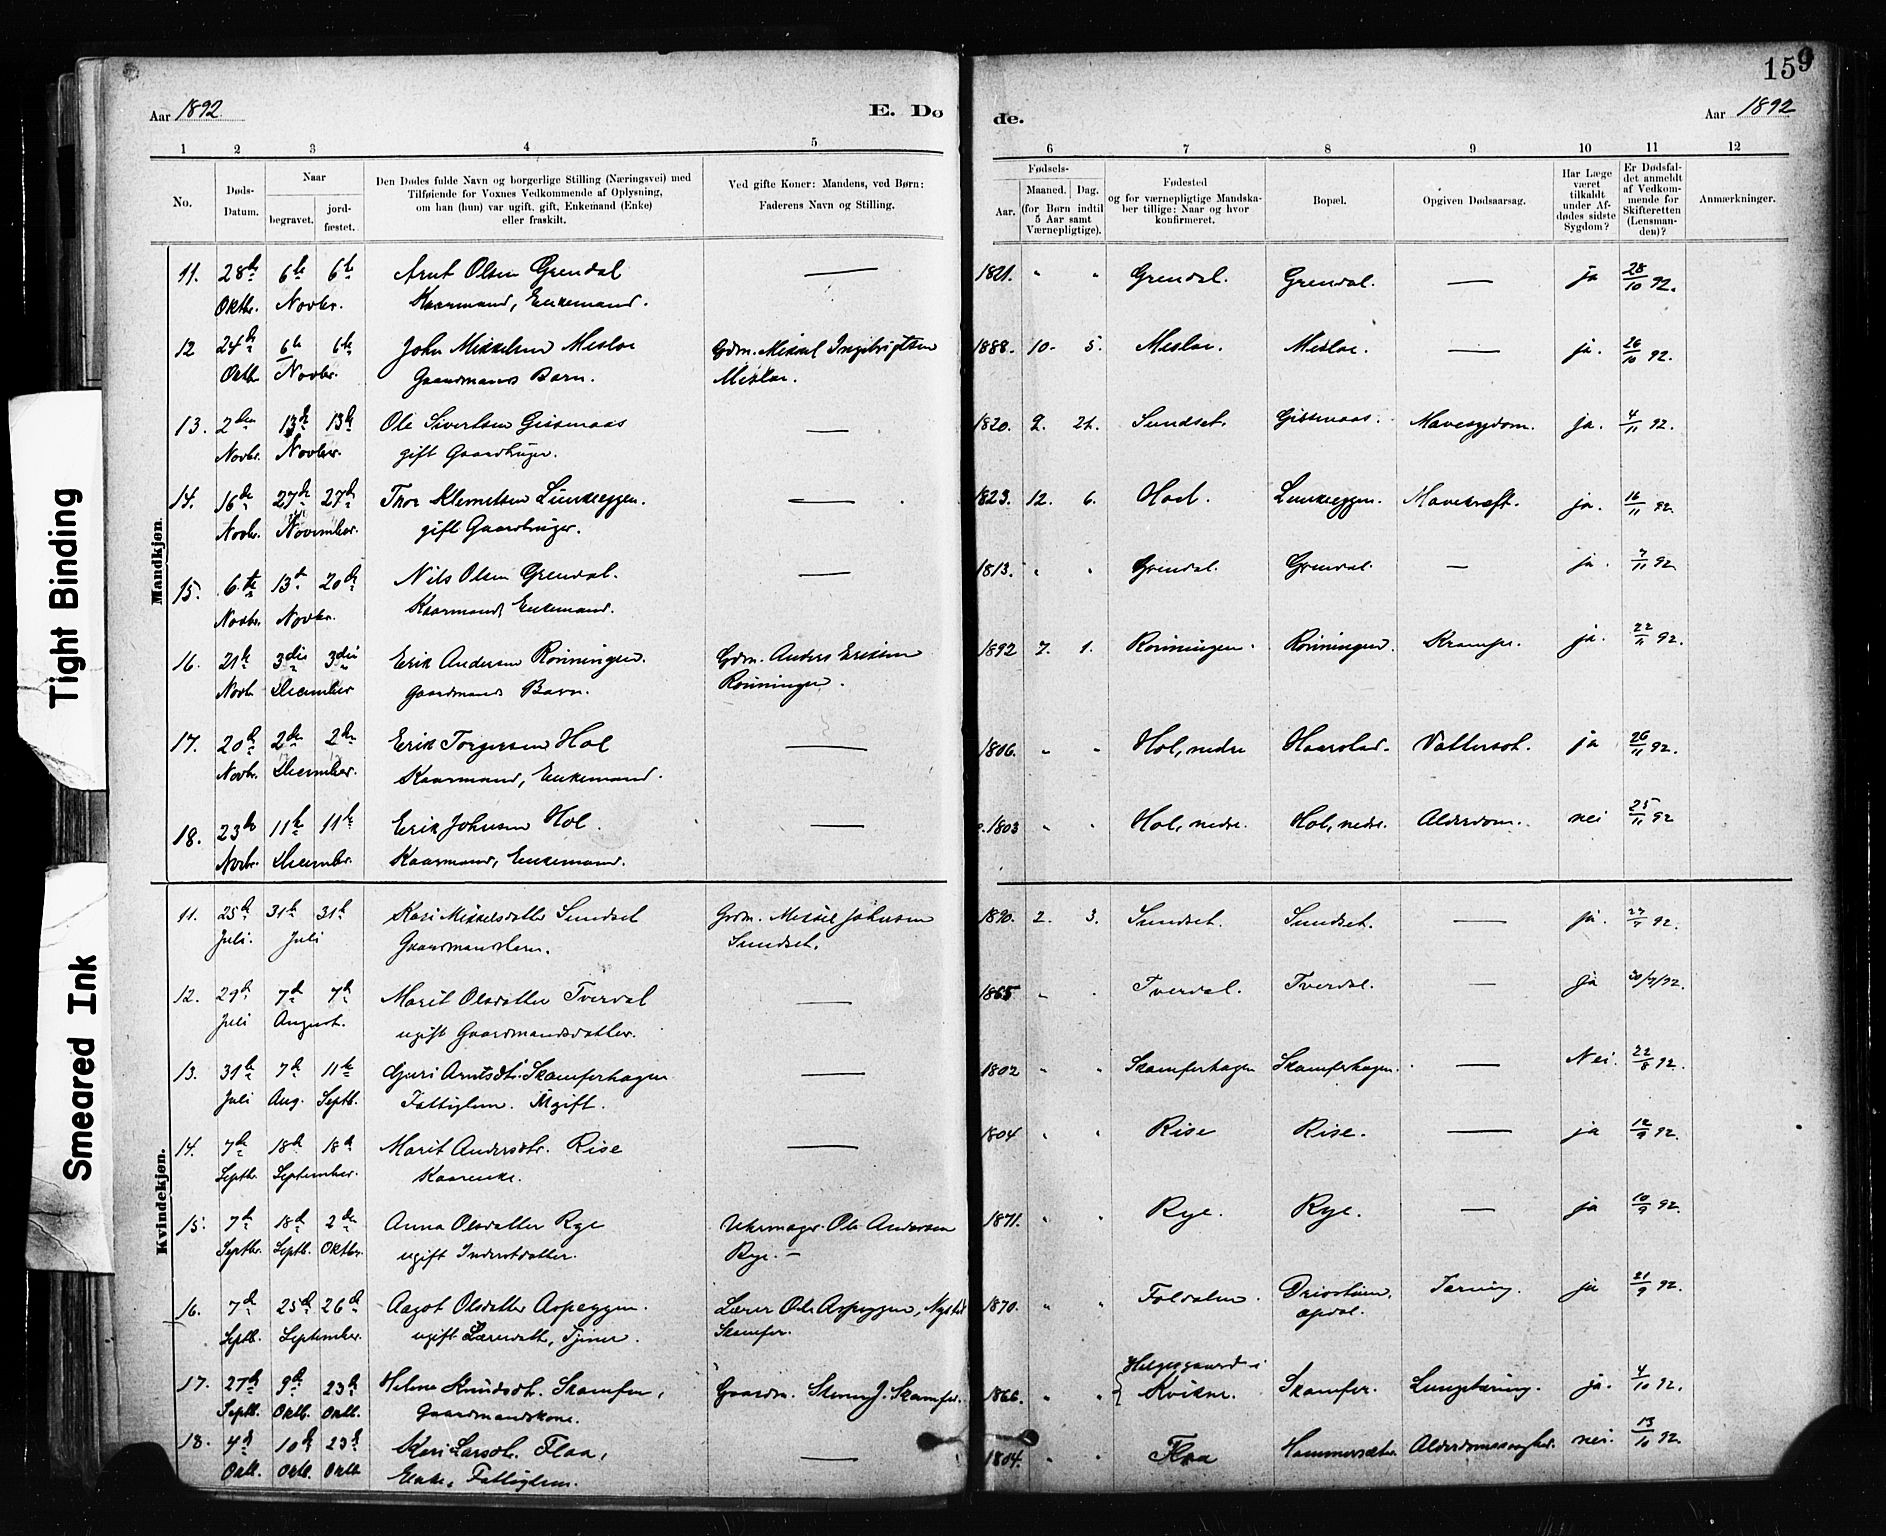 159
Aar 1892
E. Dø
de.
Aar 1892
1 2 3 4 5 6 7 8 9 10 11 12
No.
Døds-Datum.
Naar
begravet.
jord-fæstet.
Den Dødes fulde Navn og borgerlige Stilling (Næringsvei) med
Tilføiende for Voxnes Vedkommende af Oplysning,
om han (hun) var ugift, gift, Enkemand (Enke)
eller fraskilt.
Ved gifte Koner: Mandens, ved Børn:
Faderens Navn og Stilling.
Fødsels-
Aar.
Maaned. Dag.
(for Børn indtil
5 Aar samt
Værnepligtige).
Fødested
og for værnepligtige Mandska-
ber tillige: Naar og hvor
konfirmeret.
Bopæl.
Opgiven Dødsaarsag.
Har Læge
været
tilkaldt
under Af-
dødes sidste
Sygdom?
Er Dødsfal-
det anmeldt
af Vedkom-
mende for
Skifteretten
(Lensman-
den)?
Anmærkninger.
Mandkjøn.
11. 28de 6te 6te Arnt Olsen Grendal — 1821. " " Grendal. Grendal. — ja 28/10 92.
Oktbr. Novbr. Kaarmand, Enkemand.
12 24de 6te 6te John Mikkelsen Mesloe Gdm. Mikkel Ingebrigtsen 1888. 10. 5. Mesloe. Mesloe. — ja. 26/10 92.
Oktb. Novbr. Gaardmands Barn. Mesloe.
13. 2den 13de 13de Ole Sivertsen Gissmaas — 1820. 2. Sundset. Gissmaas. Mavesygdom. ja. 4/11 92.
Novbr. Novber. gift Gaardbruger.
14. 16de 27de 27de Thor Klemetsen Lunkeeggen. — 1823. 12. 6. Hoel. Lunkeeggen. Mavekræft. ja. 16/11 92.
Novbr. November. gift Gaardbruger.
15. 6te 13de 20de Nils Olsen Grendal. — 1813. " " Grendal. Grendal. — ja. 7/11 92.
Novbr. Novbr. Kaarmand, Enkemand.
16. 21de 3die 3die Erik Andersen Rönningen. Gdm. Anders Eriksen 1892 7. 1. Rönningen. Rönningen. Krampe. ja. 22/11 92.
Novb. December Gaardmands Barn. Rönningen.
17. 20de 2den 2den Erik Torgersen Hol — 1806. " " Hol, nedre Vattersot. ja 26/11 92.
Novbr. December. Kaarmand, Enkemand.
18. 23de 11te 11te Erik Johnsen Hol. — 1803 " " Hol, nedre. Hol, nedre. Alderdom. nei 25/11 92
Novbr. Decembr. Kaarmand, Enkemand.
Kvindekjøn.
11. 25de 31te 31te Kari Mikkelsdatter Sundset Grdm. Mikkel Johnsen 1890. 2. 3. Sundset. Sundset. — ja. 92.
Juli. Juli Gaardmandsbarn. Sundset.
12. 29de 7de 7de Marit Olsdatter Tverdal — 1865 " " Tverdal. Tverdal. — ja 30/7/92.
Juli August. ugift Gaardmandsdatter.
13. 31te 7de 11te Guri Arntsdtr. Skamferhagen — 1802 " " Skamferhagen Skamferhagen. — Nei. 22/8 92.
Juli Aug. Septb. Fattiglem. Ugift.
14. 7de 18de 18de Marit Andersdtr. Rise — 1804 " " Rise Rise. — ja 12/9 92.
Septbr. September. Kaarenke.
15. 7de 18de 2den Anna Olsdatter Rye Uhrmager Ole Andersen 1871. " " Rye. Rye. — ja 10/9 92.
Septbr. Septb. Oktbr. ugift Inderstdatter. Rye. —
16. 7de 25de 26de Aagot Olsdatter Aspeggen. Lærer Ole Aspeggen, 1870. " " Foldalen. Drivstuen Tæring. ja 21/9 92.
Septb. September. ugift Lærerdatt., Tjener. Skamfer. Opdal.
17. 27de 9de 23de Helene Knudsdtr. Skamfer, Gaardm. J. Skamfer. 1866. " " Helgesgaard i Kvikne. Skamfer. Lungetæring. ja. 4/10 92.
Septb. Oktb. Oktb. Gaardmandskone.
18. 4de 10de 23de Kari Larsdtr. Flaa, — 1804. " " Flaa Hammersæter. nei. 13/10 92.
Oktb. Oktb. Oktb Enke, Fattiglem.
Tight Binding
Smeared Ink